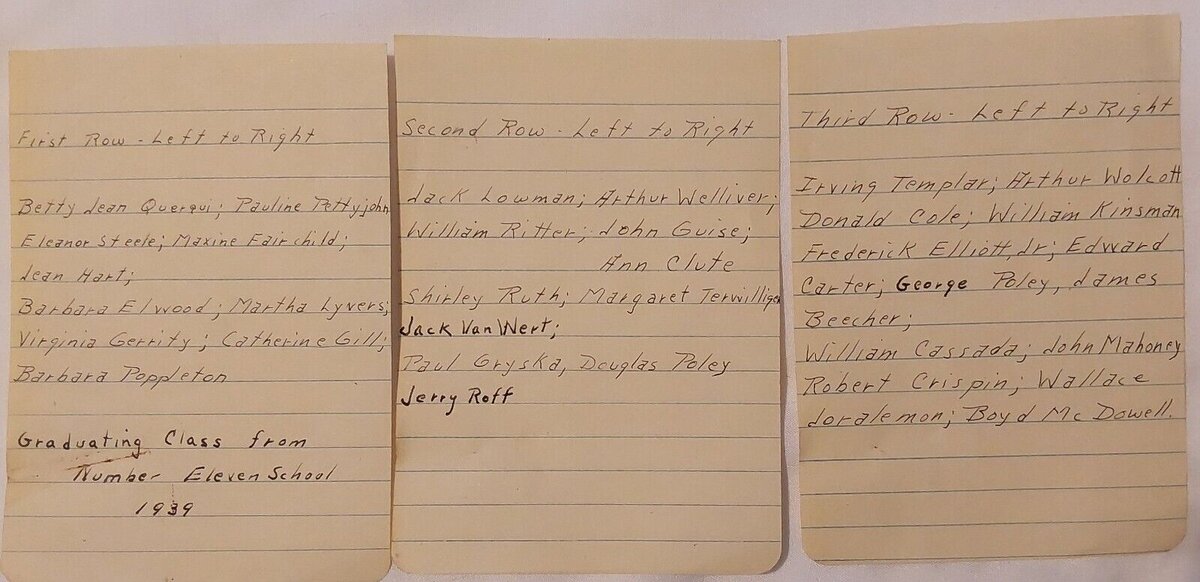 First Row - Left to Right
Betty Jean Querqui; Pauline Pettyjohn
Eleanor Steele; Maxine Fairchild;
Jean Hart;
Barbara Elwood; Martha Lyvers;
Virginia Gerrity; Catherine Gill;
Barbara Poppleton
Graduating Class from
Number Eleven School
1939
Second Row - Left to Right
Jack Lowman; Arthur Welliver;
William Ritter; John Guise;
Ann Clute
Shirley Ruth; Margaret Terwilliger
Jack Van Wert;
Paul Gryska, Douglas Poley
Jerry Roff
Third Row - Left to Right
Irving Templar; Arthur Wolcott
Donald Cole; William Kinsman
Frederick Elliott, Jr; Edward
Carter; George Poley, James
Beecher;
William Cassada; John Mahoney
Robert Crispin; Wallace
Joralemon; Boyd Mc Dowell.